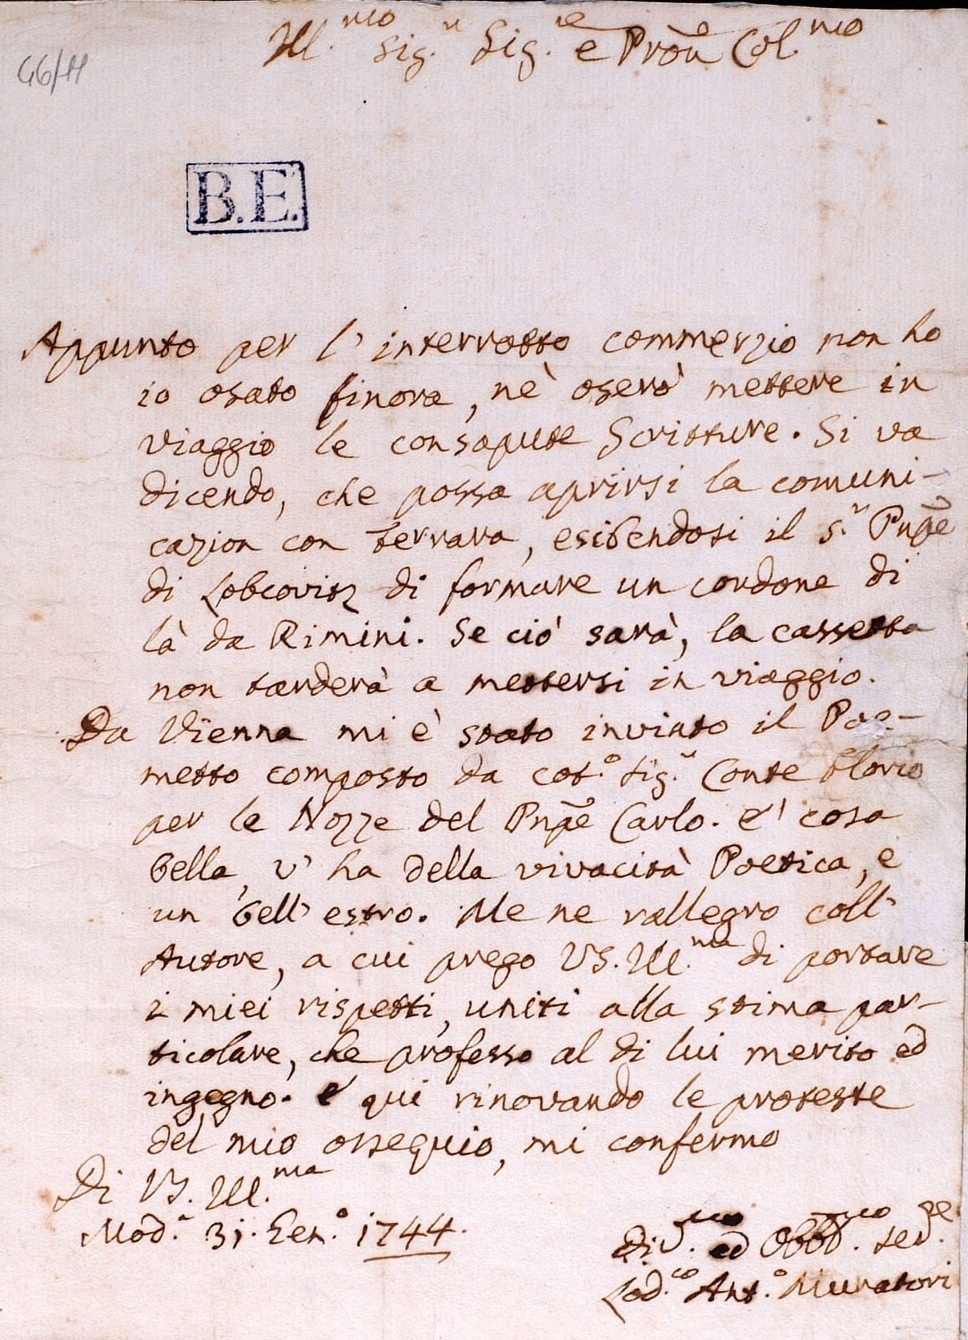 66/11
Ill.mo Sig.r Sig.re e Pron Col.mo
B.E.
Appunto per l' interrotto commerzio non ho
io osato finora, nè oserò mettere in
viaggio le consapute Scritture. Si va
dicendo, che possa aprirsi la comuni-
cazion con Ferrara, esibendosi il S.r Pnpe
di Lobcovitz di formare un cordone di
là da Rimini. Se ciò sarà, la cassetta
non tarderà a mettersi in viaggio.
Da Vienna mi è stato inviato il Poe-
metto composto da cot.o Sig.r Conte Florio
per le Nozze del Pnpe Carlo. E' cosa
bella, v' ha della vivacità Poetica, e
un bell' estro. Me ne rallegro coll'
Autore, a cui prego VS. Ill.ma di portare
i miei rispetti, uniti alla stima par-
ticolare, che professo al di lui merito ed
ingegno. E qui rinovando le proteste
del mio ossequio, mi confermo
Di VS. Ill.ma
Mod.a 31. Gen.o 1744.
Div.mo ed Obbl.mo Ser.re
Lod.co Ant.o Muratori